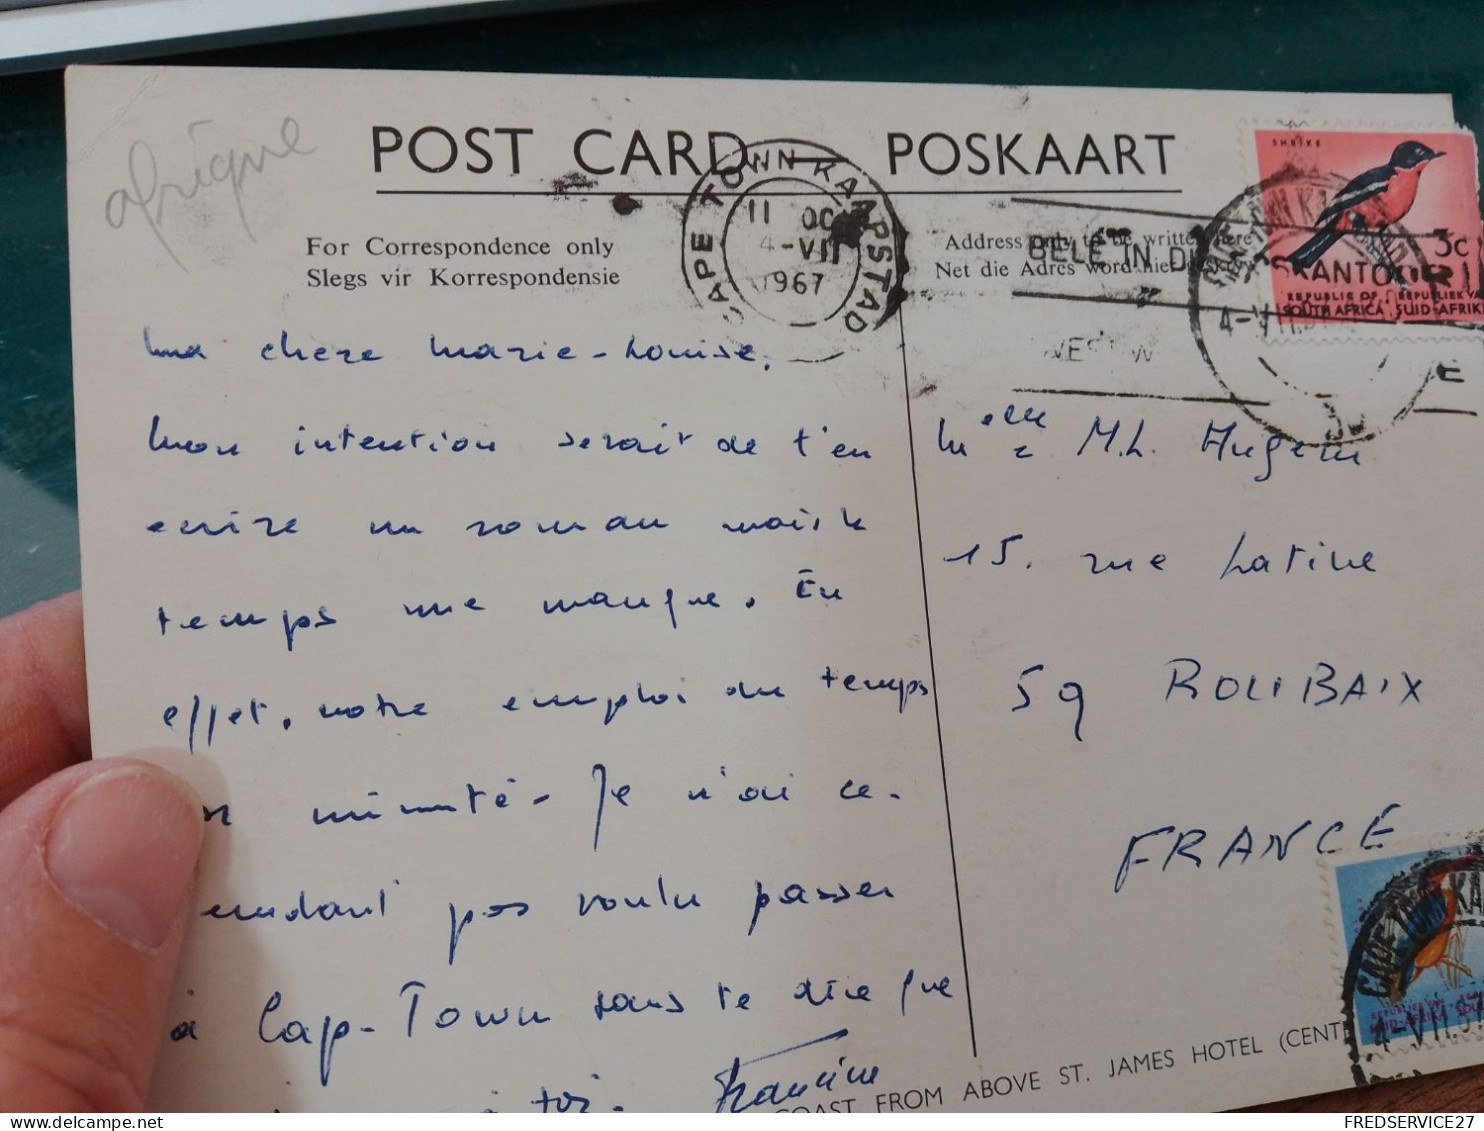 afrique
POST CARD POSKAART
For Correspondence only
Slegs vir Korrespondensie
CAPE TOWN KAAPSTAD
11 OC
4-VII
1967
Address only to be written here
Net die Adres word hier
BELÊ IN DI
SKANTOOR
SHRIKE
3c
REPUBLIC OF SOUTH AFRICA
REPUBLIEK VAN SUID-AFRIKA
4-VII
E
Ma chere Marie-Louise,
Mon intention serait de t'en
ecrire un roman mais le
temps me manque. En
effet, notre emploi du temps
minuté - Je n'ai ce-
pendant pas voulu passer
à Cap-Town sans te dire que
à toi. Francine
Melle M.L.
15. rue Latine
59 ROUBAIX
FRANCE
CAPE TOWN KA
4-VII.67
COAST FROM ABOVE ST. JAMES HOTEL (CENT
FREDSERVICE27